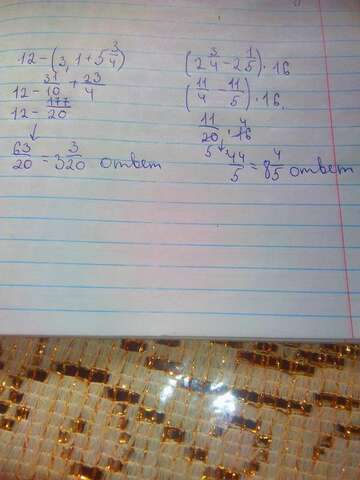 12-(3,1+5 3/4)
12- 31/10 + 23/4
12- 177/20
↓
63/20 = 3 3/20 ответ
(2 3/4 - 2 1/5)·16
(11/4 - 11/5)·16.
11/20 · 16 4
5 ↓ 44/5 = 8 4/5 ответ